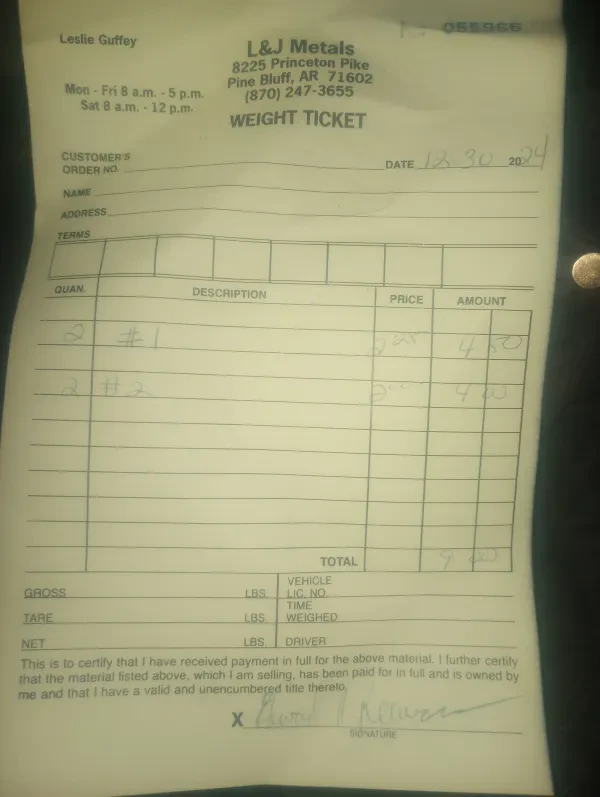 055966
Leslie Guffey
L&J Metals
8225 Princeton Pike
Pine Bluff, AR 71602
(870) 247-3655
Mon - Fri 8 a.m. - 5 p.m.
Sat 8 a.m. - 12 p.m.
WEIGHT TICKET
CUSTOMER'S
ORDER NO.
DATE 12 30 2024
NAME
ADDRESS
TERMS
QUAN. DESCRIPTION PRICE AMOUNT
2 #1 4 50
2 #2 2 00 4 00
TOTAL 9 00
GROSS LBS. VEHICLE LIC. NO.
TARE LBS. TIME WEIGHED
NET LBS. DRIVER
This is to certify that I have received payment in full for the above material. I further certify
that the material listed above, which I am selling, has been paid for in full and is owned by
me and that I have a valid and unencumbered title thereto.
X
SIGNATURE